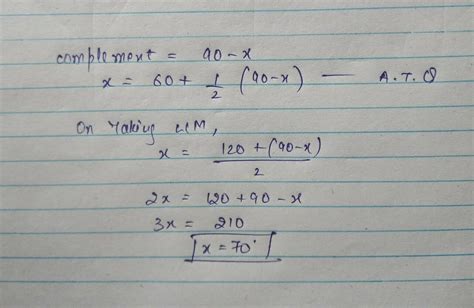 complement = 90-x
x = 60+ 1/2 (90-x) — A.T.Q
On taking LCM,
x = 120 + (90-x) / 2
2x = 120 +90 - x
3x = 210
x = 70°